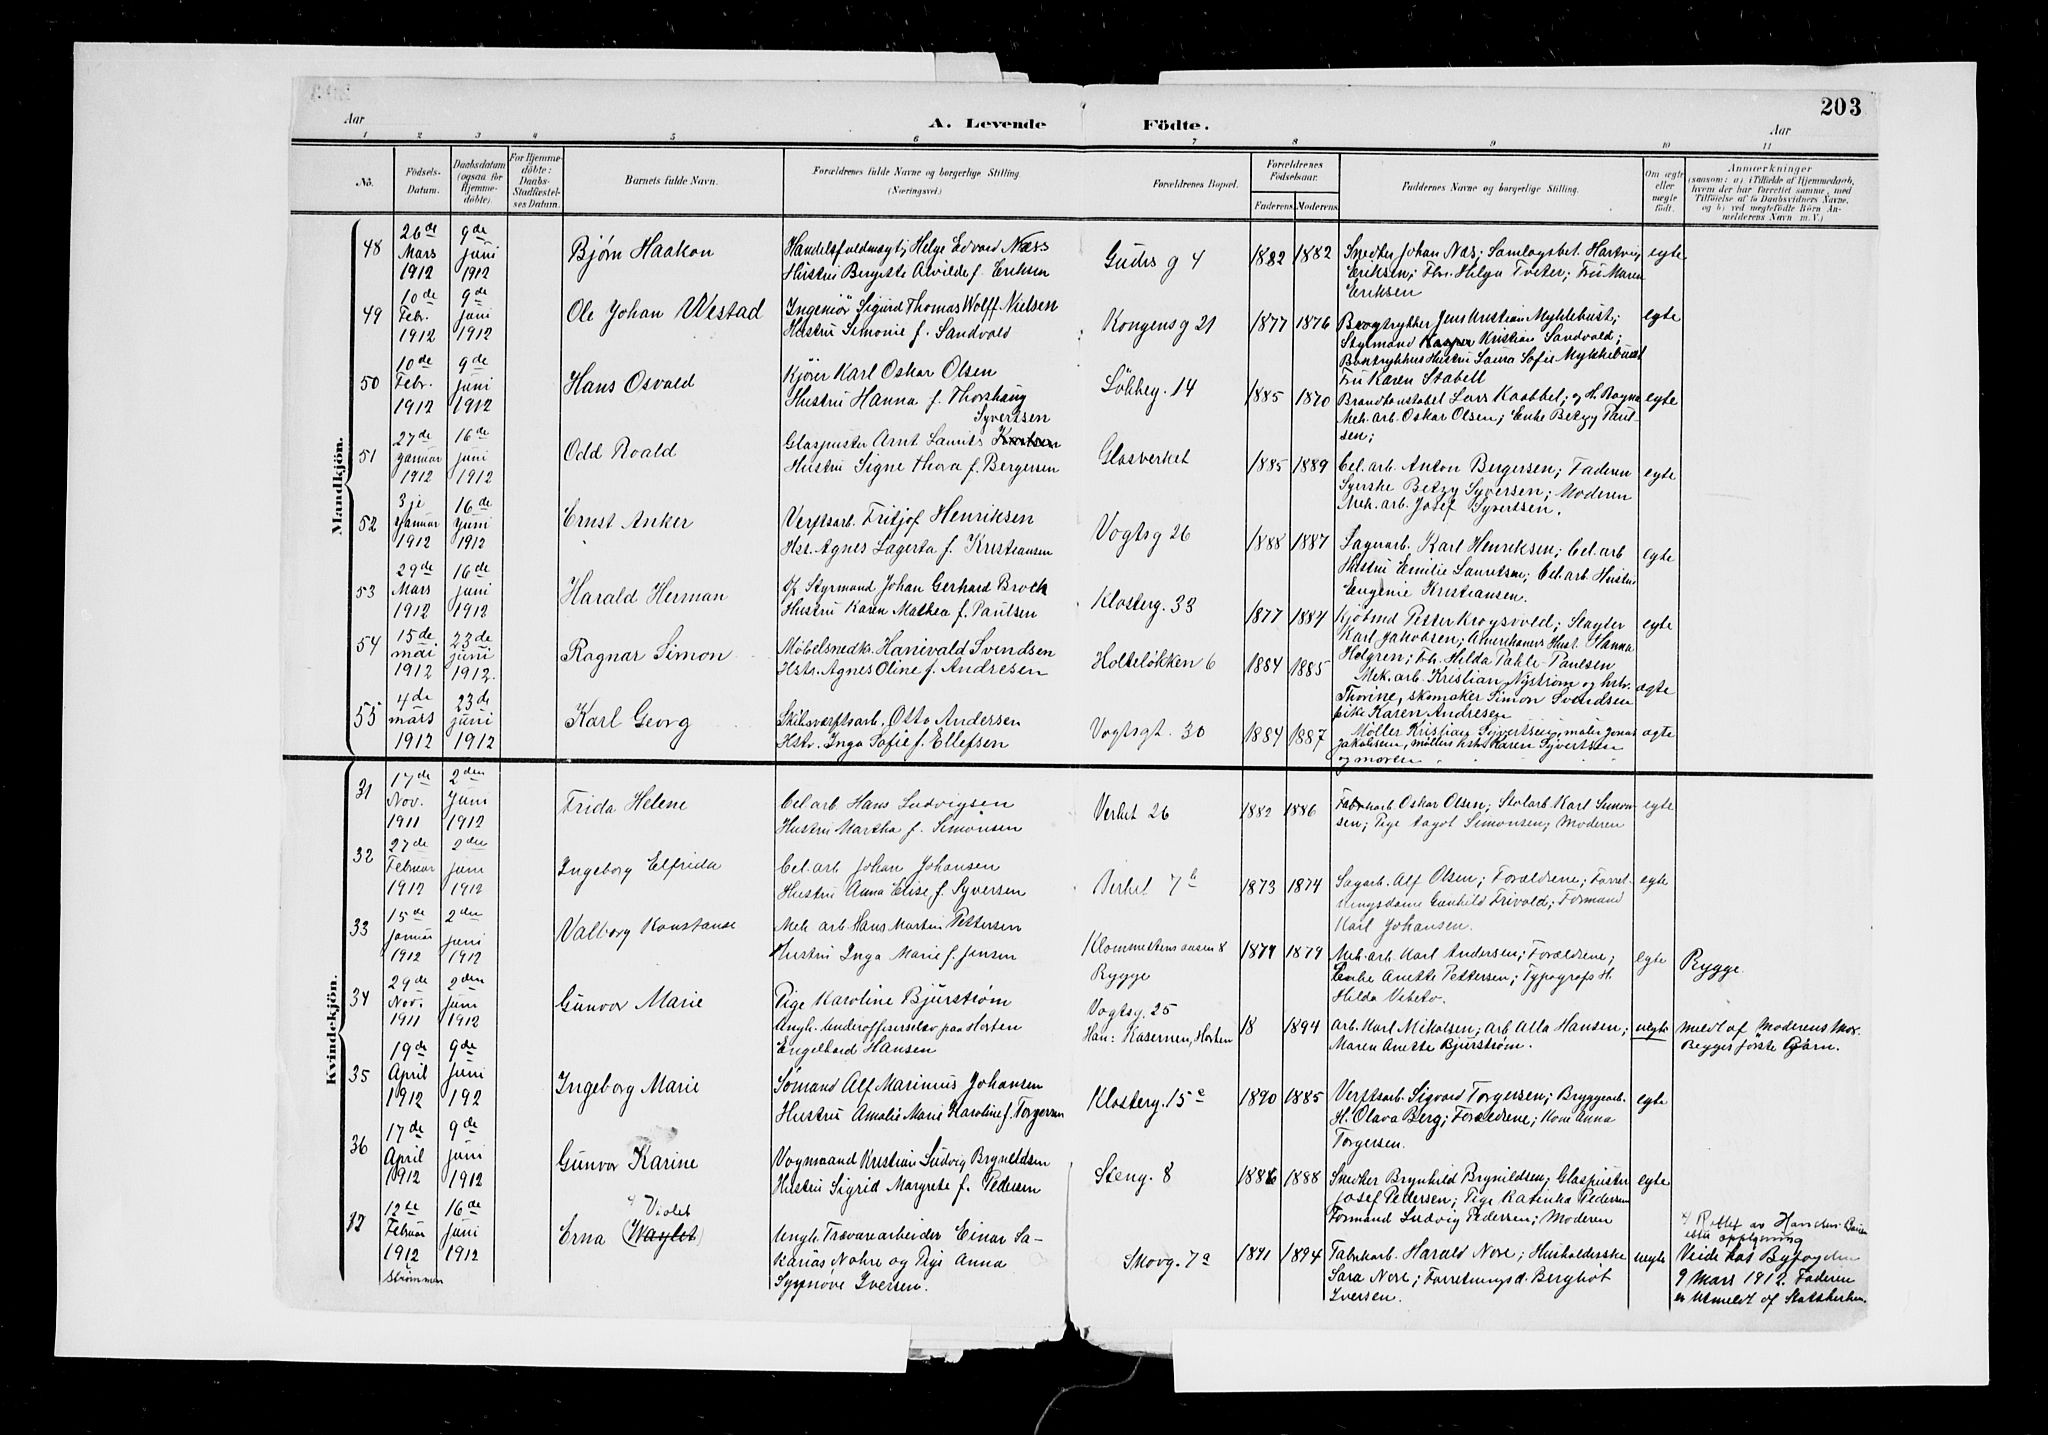 203
Aar
A. Levende Födte.
Aar
1 2 3 4 5 6 7 8 9 10 11
No.
Födsels-Datum.
Daabsdatum (ogsaa for Hjemme-döbte).
For Hjemme-döbte: Daabs-Stadfæstel-ses Datum.
Barnets fulde Navn.
Forældrenes fulde Navne og borgerlige Stilling. (Næringsvei.)
Forældrenes Bopæl.
Forældrenes Födselsaar.
Faderens. Moderens.
Faddernes Navne og borgerlige Stilling.
Om ægte eller uægte født.
Anmærkninger
samsom: a) i Tilfælde af Hjemmedaab, hvem der har forrettet samme, med Tilföielse af to Daabsvidners Navne, og b) ved uægtefödte Börn An-melderens Navn m. V.)
Mandkjön.
48 26de Mars 1912 9de juni 1912
Bjørn Haakon
Handelsfuldmægt; Helge Edvard Næss
Hustru Bergitte Alvilde f. Eriksen
Gudes g 4 1882 1882
Snedker Johan Næs; Samlagsbet. Hartvig
Eriksen; Frk. Helga Tveter; Fru Maren
Eriksen
egte
49 10de Febr. 1912 9de juni 1912
Ole Johan Westad
Ingeniør Sigurd Thomas Wolff Nielsen
Hustru Simonie f. Sandvold
Kongens g 21 1877 1876
Bogtrykker Jens Kristian Myklebust;
Styrmand Kasper Kristian Sandvold;
Boktrykkers Hustru Laura Sofie Myklebust
Fru Karen Stabell
egte
50 10de Febr. 1912 9de juni 1912
Hans Osvald
Kjører Karl Oskar Olsen
Hustru Hanna f. Thorshaug
Løkkeg. 14 1885 1870
Brandkonstabel Lars Kaabbel; og H. Ragna
Mek. arb. Oskar Olsen; Enke Betzy Paul-
sen;
egte
51 27de januar 1912 16de juni 1912
Odd Roald
Syvertsen
Glaspuster Arnt Lauritz
Hustru Signe Thora f. Bergersen
Glasverket 1885 1889
Cel. arb. Anton Bergersen; Faderen
Syerske Betzy Syversen; Moderen
Mek. arb. Josef Syvertsen.
egte
52 3je Januar 1912 16de juni 1912
Ernst Anker
Verftsarb. Fritjof Henriksen
Hst. Agnes Lagerta f. Kristiansen
Vogtsg 26 1888 1887
Sagarb. Karl Henriksen; Cel. arb
Hustru Emilie Lauritsen; Cel. arb. Hustru
Eugenie Kristiansen.
egte
53 29de Mars 1912 16de juni 1912
Harald Herman
Styrmand Johan Gerhard Brock
Hustru Karen Mathea f. Paulsen
Klosterg. 33 1877 1884
Kjøbmd Petter Krogsvold; Slagter
Karl Jakobsen; Amerikaners Hust. Hanna
Holgren; Frk. Hilda Pahle-Paulsen
egte
54 15de mai 1912 23de juni 1912.
Ragnar Simon
Møbelsnedkr. Hanevald Svendsen
Hstr. Agnes Oline f. Andresen
Holteløkken 6 1884 1885
Mek. arb. Kristian Nystrøm og hstr.
Thorine, skomaker Simon Svendsen
pike Karen Andresen
ægte
55 4de mars 1912 23de juni 1912
Karl Georg
Skibsværftsarb. Otto Andersen
Hstr. Inga Sofie f. Ellefsen
Vogtsgt. 30 1884 1887
Møller Kristian Syvertsen, maler Jonas
Jakobsen, møllers hstr Karen Syvertsen
og moren
ægte
Kvindekjön.
31 17de Nov. 1911 2den Juni 1912
Frida Helene
Cel. arb Hans Ludvigsen
Hustru Martha f. Simonsen
Verket 26 1882 1886
Fabrikarb Oskar Olsen; Stolarb Karl Simon-
sen; Pige Aagot Simonsen; Moderen
egte
32 27de Februar 1912 2den juni 1912
Ingeborg Elfrida
Cel. arb Johan Johansen
Hustru Anna Elise f. Syversen
Verket 7b 1873 1874
Sagarb. Alf Olsen; Forældrene; Forret-
ningsdame Gunhild Frivold; Formand
Karl Johansen.
egte
33 15de Januar 1912 2den juni 1912
Valborg Konstanse
Mek arb. Hans Martin Pettersen
Hustru Inga Marie f. Jensen
Klommestensaasen 8
Rygge
1874 1879
Mek. arb. Karl Andersen; Forældrene;
Enke Anette Pettersen; Typografs H.
Hilda Vebeto.
egte
Rygge
34 29de Nov. 1911 2den Juni 1912
Gunvor Marie
Pige Karoline Bjurstrøm
Ungk. Underofficerselev paa Horten
Engelhard Hansen
Vogtsg. 25
Han: Kasernen, Horten
18 1894
arb. Karl Mikalsen; arb Atla Hansen;
Maren Anette Bjurstrøm.
uegte
meldt af Moderens Mor.
Begges første Barn.
35 19de April 1912 9de Juni 192
Ingeborg Marie
Sømand Alf Marinius Johansen
Hustru Amalie Marie Karoline f. Torgersen
Klosterg. 15c 1890 1885
Verftsarb. Sigvard Torgersen; Bryggearb.
H. Olava Berg; Forældrene; Kone Anna
Torgersen.
egte
36 17de April 1912 9de juni 1912
Gunvor Karine
Vognmand Kristian Ludvig Bryneldsen
Hustru Sigrid Margrete f. Pedersen
Steng. 8 1886 1888
Snedker Brynhild Brynildsen; Glaspuster
Josef Pedersen; Pige Katinka Pedersen
Formand Ludvig Pedersen; Moderen
egte
37 12te Februar 1912 i Strømmen 16de Juni 1912
Violet
Erna (Waylet)
Ungk. Trævarearbeider Einar Sa-
karias Nohre og Pige Anna
Synnøve Iversen.
Skovg. 7a 1891 1894
Fabrikarb. Harald Nore; Husholderske
Sara Nore; Forretningsd. Bergliot
Iversen.
uegte
Rettet av
efter opgivning
Veide hos Byfogden
9 Mars 1912. Faderen
er Utmeldt af Statskirken.